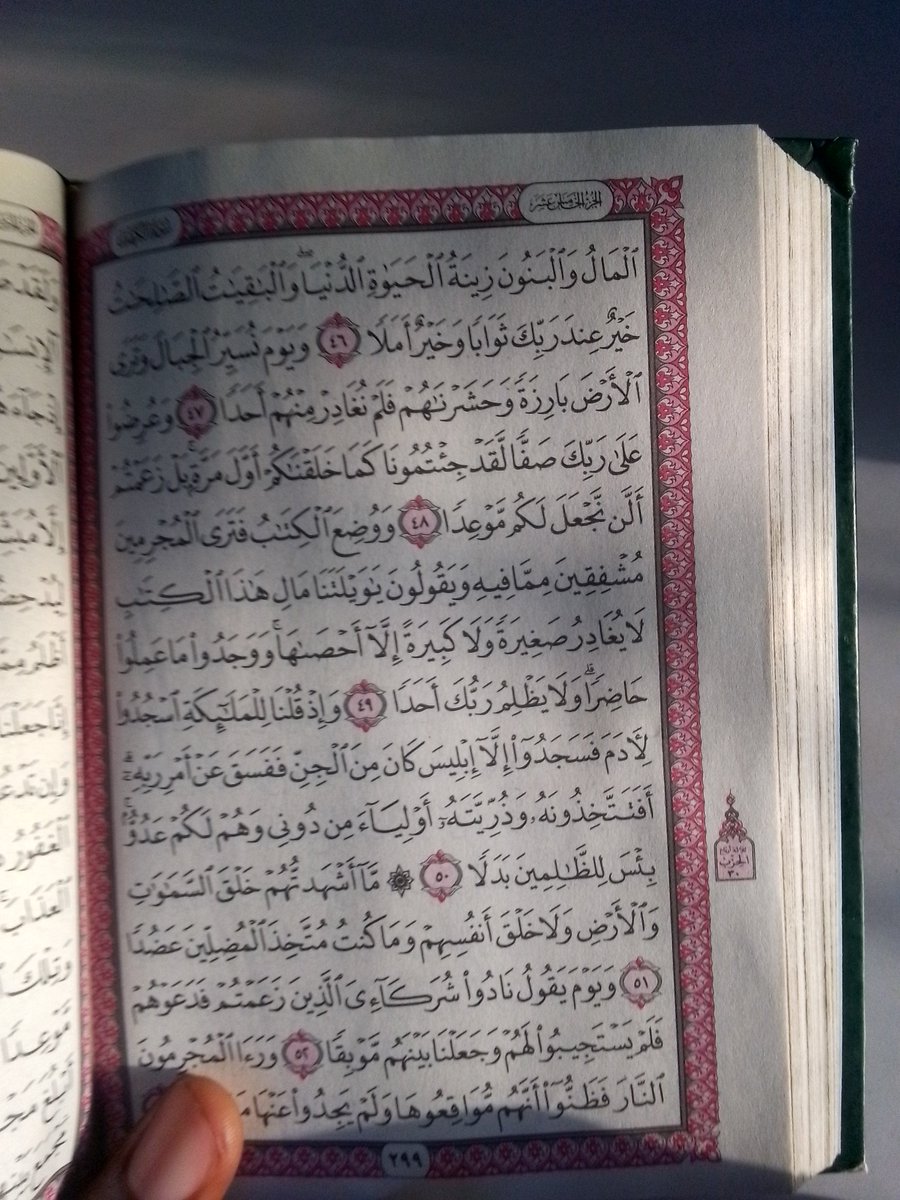 الجزء الخامس عشر
سورة الكهف
ٱلۡمَالُ وَٱلۡبَنُونَ زِينَةُ ٱلۡحَيَوٰةِ ٱلدُّنۡيَاۖ وَٱلۡبَٰقِيَٰتُ ٱلصَّٰلِحَٰتُ
خَيۡرٌ عِندَ رَبِّكَ ثَوَابٗا وَخَيۡرٌ أَمَلٗا ٤٦ وَيَوۡمَ نُسَيِّرُ ٱلۡجِبَالَ وَتَرَى
ٱلۡأَرۡضَ بَارِزَةٗ وَحَشَرۡنَٰهُمۡ فَلَمۡ نُغَادِرۡ مِنۡهُمۡ أَحَدٗا ٤٧ وَعُرِضُواْ
عَلَىٰ رَبِّكَ صَفّٗا لَّقَدۡ جِئۡتُمُونَا كَمَا خَلَقۡنَٰكُمۡ أَوَّلَ مَرَّةِۭۚ بَلۡ زَعَمۡتُمۡ
أَلَّن نَّجۡعَلَ لَكُم مَّوۡعِدٗا ٤٨ وَوُضِعَ ٱلۡكِتَٰبُ فَتَرَى ٱلۡمُجۡرِمِينَ
مُشۡفِقِينَ مِمَّا فِيهِ وَيَقُولُونَ يَٰوَيۡلَتَنَا مَالِ هَٰذَا ٱلۡكِتَٰبِ
لَا يُغَادِرُ صَغِيرَةٗ وَلَا كَبِيرَةً إِلَّآ أَحۡصَىٰهَاۚ وَوَجَدُواْ مَا عَمِلُواْ
حَاضِرٗاۗ وَلَا يَظۡلِمُ رَبُّكَ أَحَدٗا ٤٩ وَإِذۡ قُلۡنَا لِلۡمَلَٰٓئِكَةِ ٱسۡجُدُواْ
لِأٓدَمَ فَسَجَدُوٓاْ إِلَّآ إِبۡلِيسَ كَانَ مِنَ ٱلۡجِنِّ فَفَسَقَ عَنۡ أَمۡرِ رَبِّهِۦٓۗ
أَفَتَتَّخِذُونَهُۥ وَذُرِّيَّتَهُۥٓ أَوۡلِيَآءَ مِن دُونِي وَهُمۡ لَكُمۡ عَدُوُّۢۚ
بِئۡسَ لِلظَّٰلِمِينَ بَدَلٗا ٥٠ ۞ مَّآ أَشۡهَدتُّهُمۡ خَلۡقَ ٱلسَّمَٰوَٰتِ
وَٱلۡأَرۡضِ وَلَا خَلۡقَ أَنفُسِهِمۡ وَمَا كُنتُ مُتَّخِذَ ٱلۡمُضِلِّينَ عَضُدٗا
٥١ وَيَوۡمَ يَقُولُ نَادُواْ شُرَكَآءِيَ ٱلَّذِينَ زَعَمۡتُمۡ فَدَعَوۡهُمۡ
فَلَمۡ يَسۡتَجِيبُواْ لَهُمۡ وَجَعَلۡنَا بَيۡنَهُم مَّوۡبِقٗا ٥٢ وَرَءَا ٱلۡمُجۡرِمُونَ
ٱلنَّارَ فَظَنُّوٓاْ أَنَّهُم مُّوَاقِعُوهَا وَلَمۡ يَجِدُواْ عَنۡهَا
ثلاثة أرباع
الحزب
٣٠
٢٩٩